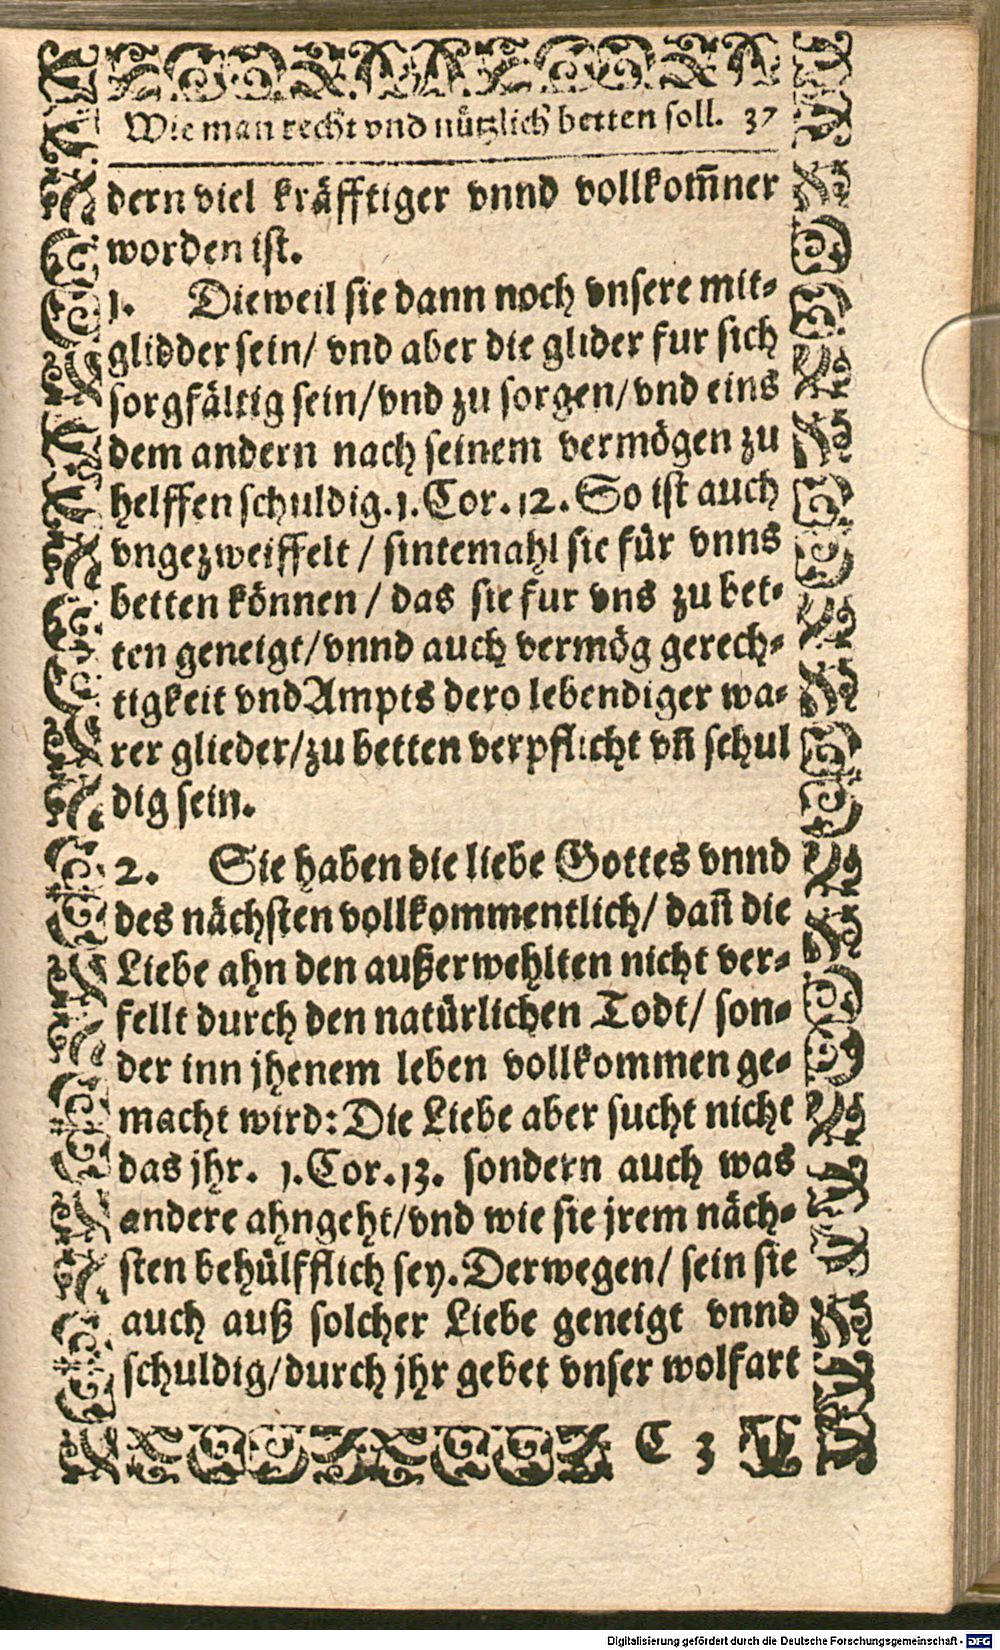 Wie man recht vnd nützlich betten soll. 37
dern viel kräfftiger vnnd vollkom̄ner
worden ist.
1. Dieweil sie dann noch vnsere mit-
glidder sein/ vnd aber die glider fur sich
sorgfältig sein/vnd zu sorgen/vnd eins
dem andern nach seinem vermögen zu
helffen schuldig.1.Cor.12.So ist auch
vngezweiffelt / sintemahl sie für vnns
betten können / das sie fur vns zu bet-
ten geneigt/vnnd auch vermög gerech-
tigkeit vnd Ampts dero lebendiger wa-
rer glieder/zu betten verpflicht vn̄ schul
dig sein.
2. Sie haben die liebe Gottes vnnd
des nächsten vollkommentlich/ dan̄ die
Liebe ahn den außerwehlten nicht ver-
fellt durch den natürlichen Todt/ son-
der inn jhenem leben vollkommen ge-
macht wird: Die Liebe aber sucht nicht
das jhr. 1.Cor.13. sondern auch was
andere ahngeht/vnd wie sie jrem näch-
sten behülfflich sey. Derwegen/ sein sie
auch auß solcher Liebe geneigt vnnd
schuldig/durch jhr gebet vnser wolfart
C 3
Digitalisierung gefördert durch die Deutsche Forschungsgemeinschaft - DFG